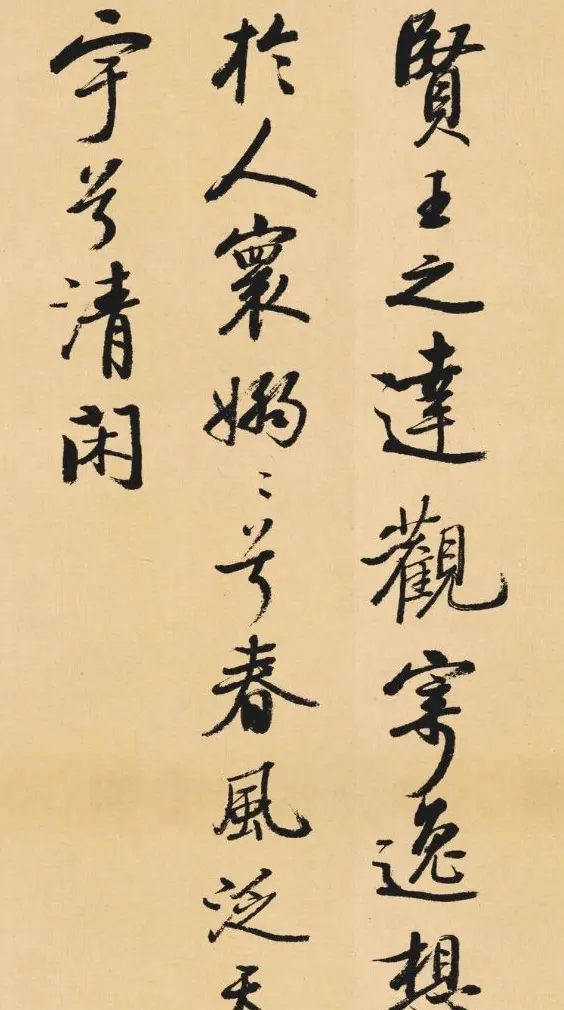 賢王之達觀寄逸想
於人寰嫋〻兮春風泛天
宇兮清閑